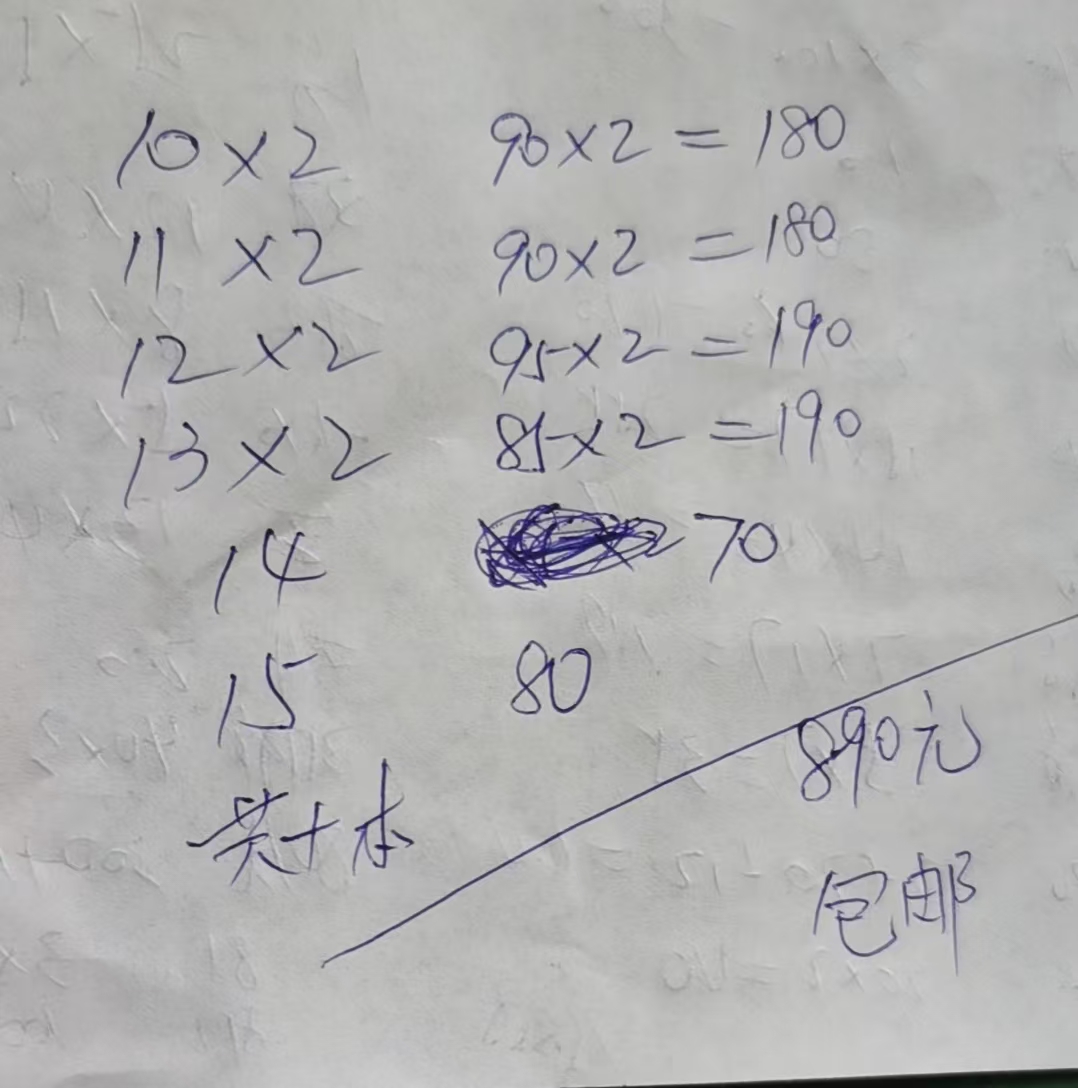 10×2 90×2=180
11×2 90×2=180
12×2 95×2=190
13×2 85×2=190
14 70
15 80
共十本
890元
包邮